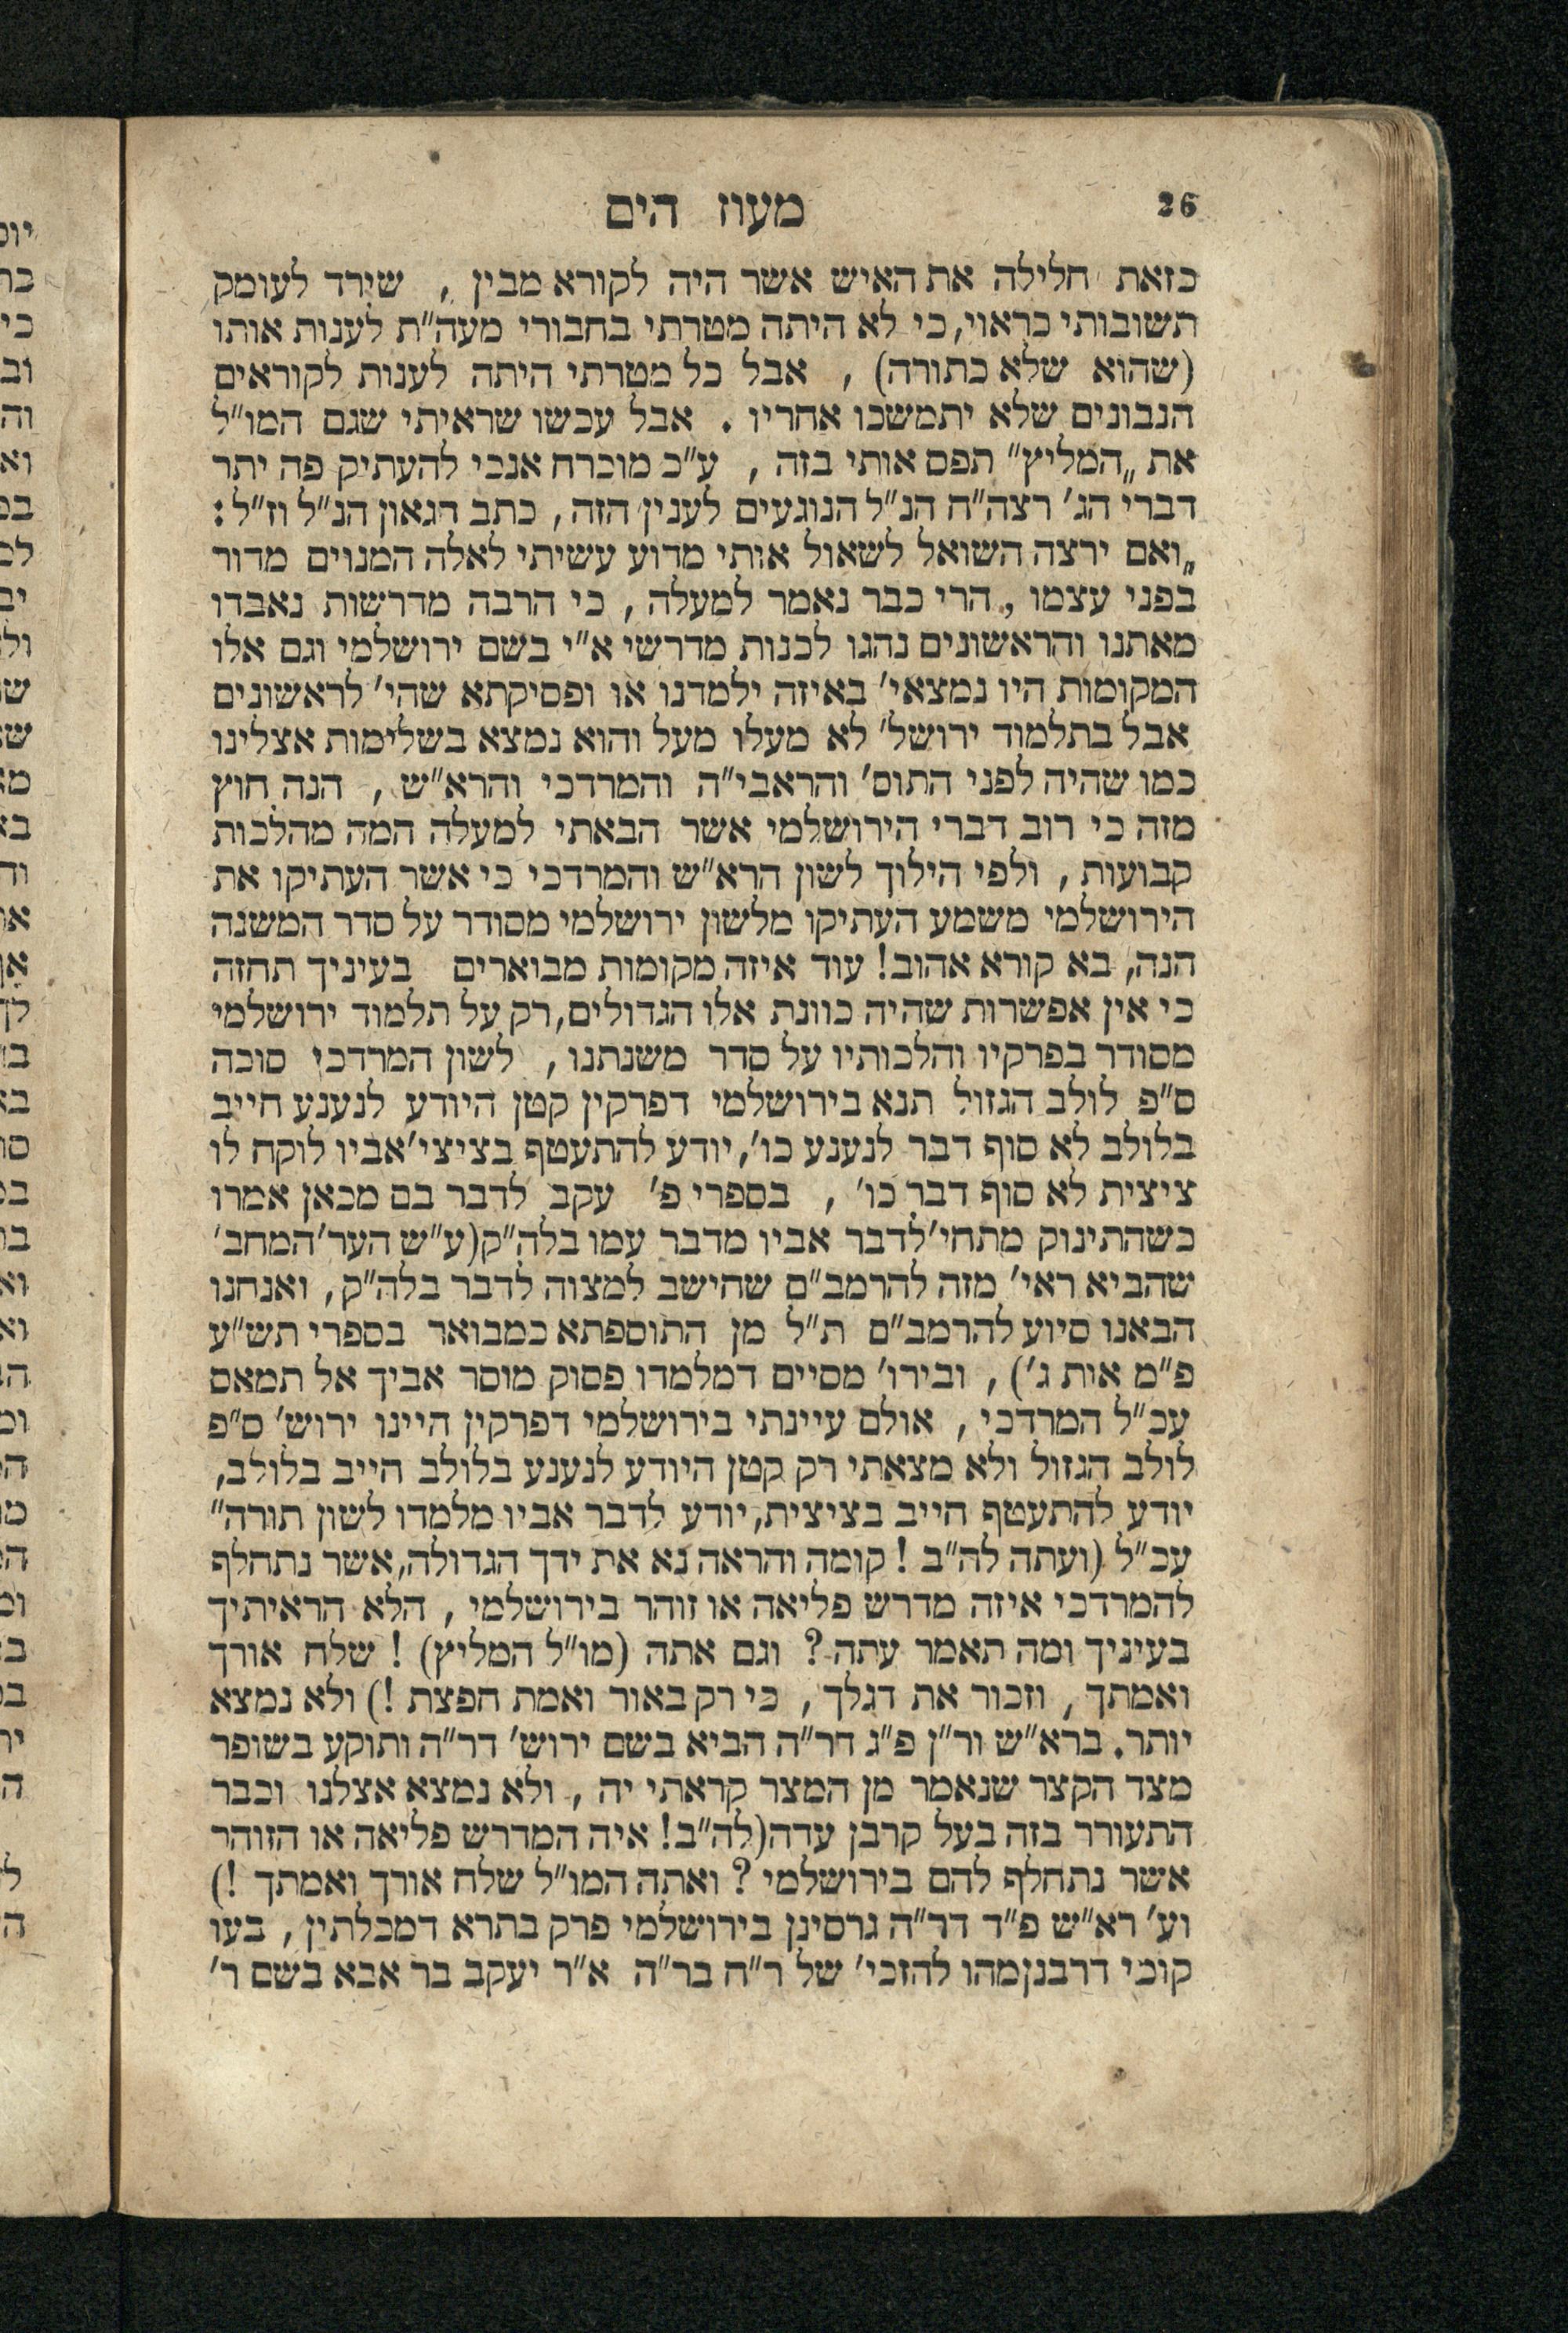 26
מעוז הים
כזאת חלילה את האיש אשר היה לקורא מבין, שירד לעומק
תשובותי כראוי, כי לא היתה מטרתי בחבורי מעה"ת לענות אותו
(שהוא שלא כתורה), אבל כל מטרתי היתה לענות לקוראים
הנבונים שלא יתמשכו אחריו. אבל עכשו שראיתי שגם המו"ל
את „המליץ" תפס אותי בזה, ע"כ מוכרח אנכי להעתיק פה יתר
דברי הג' רצה"ח הנ"ל הנוגעים לענין הזה, כתב הגאון הנ"ל וז"ל:
„ואם ירצה השואל לשאול אותי מדוע עשיתי לאלה המנוים מדור
בפני עצמו, הרי כבר נאמר למעלה, כי הרבה מדרשות נאבדו
מאתנו והראשונים נהגו לכנות מדרשי א"י בשם ירושלמי וגם אלו
המקומות היו נמצאי' באיזה ילמדנו או ופסיקתא שהי' לראשונים
אבל בתלמוד ירושל' לא מעלו מעל והוא נמצא בשלימות אצלינו
כמו שהיה לפני התוס' והראבי"ה והמרדכי והרא"ש, הנה חוץ
מזה כי רוב דברי הירושלמי אשר הבאתי למעלה המה מהלכות
קבועות, ולפי הילוך לשון הרא"ש והמרדכי כי אשר העתיקו את
הירושלמי משמע העתיקו מלשון ירושלמי מסודר על סדר המשנה
הנה, בא קורא אהוב! עוד איזה מקומות מבוארים בעיניך תחזה
כי אין אפשרות שהיה כוונת אלו הגדולים, רק על תלמוד ירושלמי
מסודר בפרקיו והלכותיו על סדר משנתנו, לשון המרדכי סוכה
ס"פ לולב הגזול תנא בירושלמי דפרקין קטן היודע לנענע חייב
בלולב לא סוף דבר לנענע כו', יודע להתעטף בציצי' אביו לוקח לו
ציצית לא סוף דבר כו', בספרי פ' עקב לדבר בם מכאן אמרו
כשהתינוק מתחי' לדבר אביו מדבר עמו בלה"ק (ע"ש הער' המחב'
שהביא ראי' מזה להרמב"ם שחישב למצוה לדבר בלה"ק, ואנחנו
הבאנו סיוע להרמב"ם ת"ל מן התוספתא כמבואר בספרי תש"ע
פ"מ אות ג'), ובירו' מסיים דמלמדו פסוק מוסר אביך אל תמאס
עכ"ל המרדכי, אולם עיינתי בירושלמי דפרקין היינו ירוש' ס"פ
לולב הגזול ולא מצאתי רק קטן היודע לנענע בלולב הייב בלולב,
יודע להתעטף הייב בציצית, יודע לדבר אביו מלמדו לשון תורה"
עכ"ל (ועתה לה"ב! קומה והראה נא את ידך הגדולה, אשר נתחלף
להמרדכי איזה מדרש פליאה או זוהר בירושלמי, הלא הראיתיך
בעיניך ומה תאמר עתה? וגם אתה (מו"ל המליץ)! שלח אורך
ואמתך, וזכור את דגלך, כי רק באור ואמת חפצת!) ולא נמצא
יותר. ברא"ש ור"ן פ"ג דר"ה הביא בשם ירוש' דר"ה ותוקע בשופר
מצד הקצר שנאמר מן המצר קראתי יה, ולא נמצא אצלנו וכבר
התעורר בזה בעל קרבן עדה (לה"ב! איה המדרש פליאה או הזוהר
אשר נתחלף להם בירושלמי? ואתה המו"ל שלח אורך ואמתך!)
וע' רא"ש פ"ד דר"ה גרסינן בירושלמי פרק בתרא דמכלתין, בעו
קומי דרבנן מהו להזכי' של ר"ח בר"ה א"ר יעקב בר אבא בשם ר'